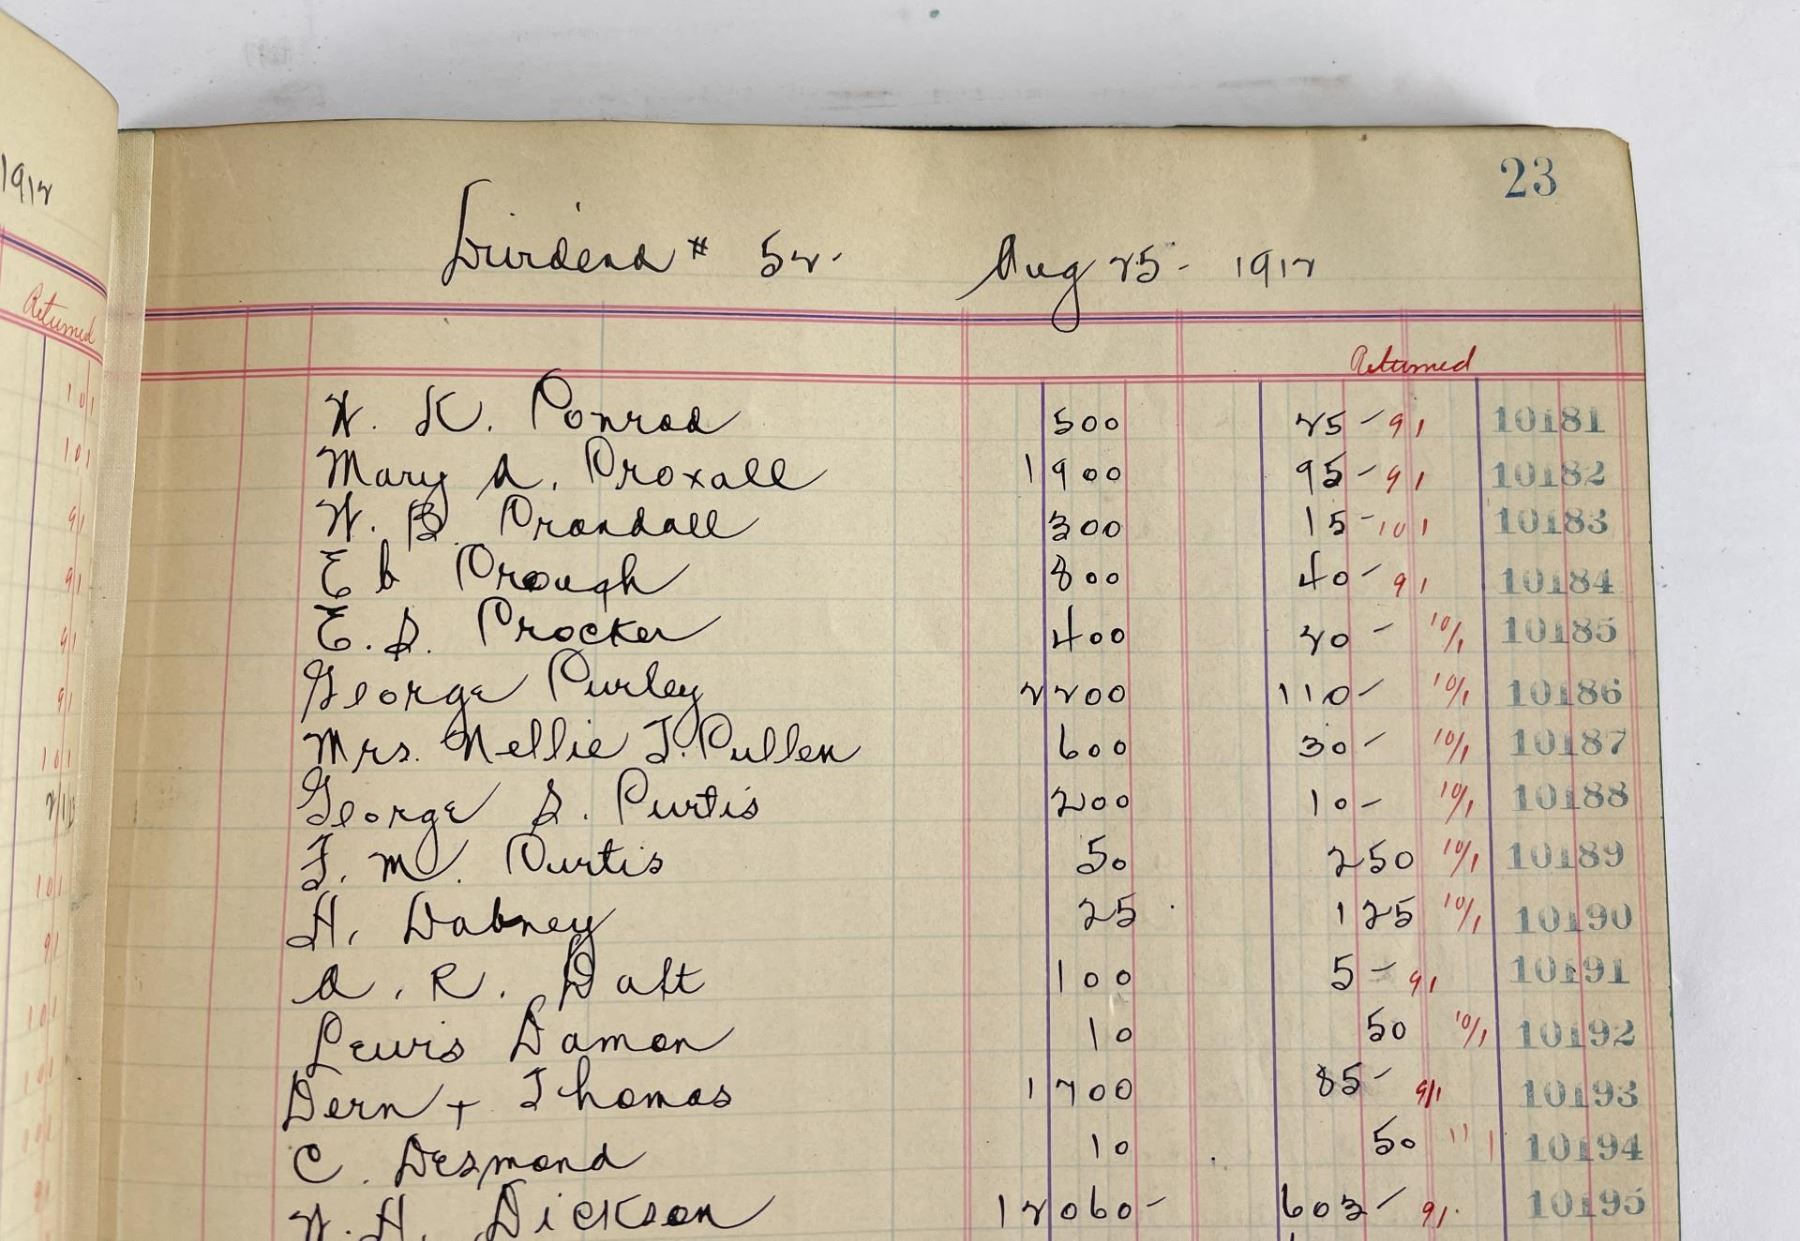 1912
Returned
23
Dividend # 52. Aug 25 - 1912
Returned
W. K. Conrad 500 25 - 91 10181
Mary A. Croxall 1900 95 - 91 10182
W. B. Crandall 300 15 - 101 10183
E b Crough 800 40 - 91 10184
E. S. Crocker 400 20 - 10/1 10185
George Curley 2200 110 - 10/1 10186
Mrs. Nellie J. Cullen 600 30 - 10/1 10187
George S. Curtis 200 10 - 10/1 10188
F. M. Curtis 50 2 50 10/1 10189
H. Dabney 25 1 25 10/1 10190
A. R. Daft 100 5 - 91 10191
Lewis Damon 10 50 10/1 10192
Dern + Thomas 1700 85 - 9/1 10193
C. Desmond 10 50 11 1 10194
W. H. Dickson 12060 - 603 - 91. 10195